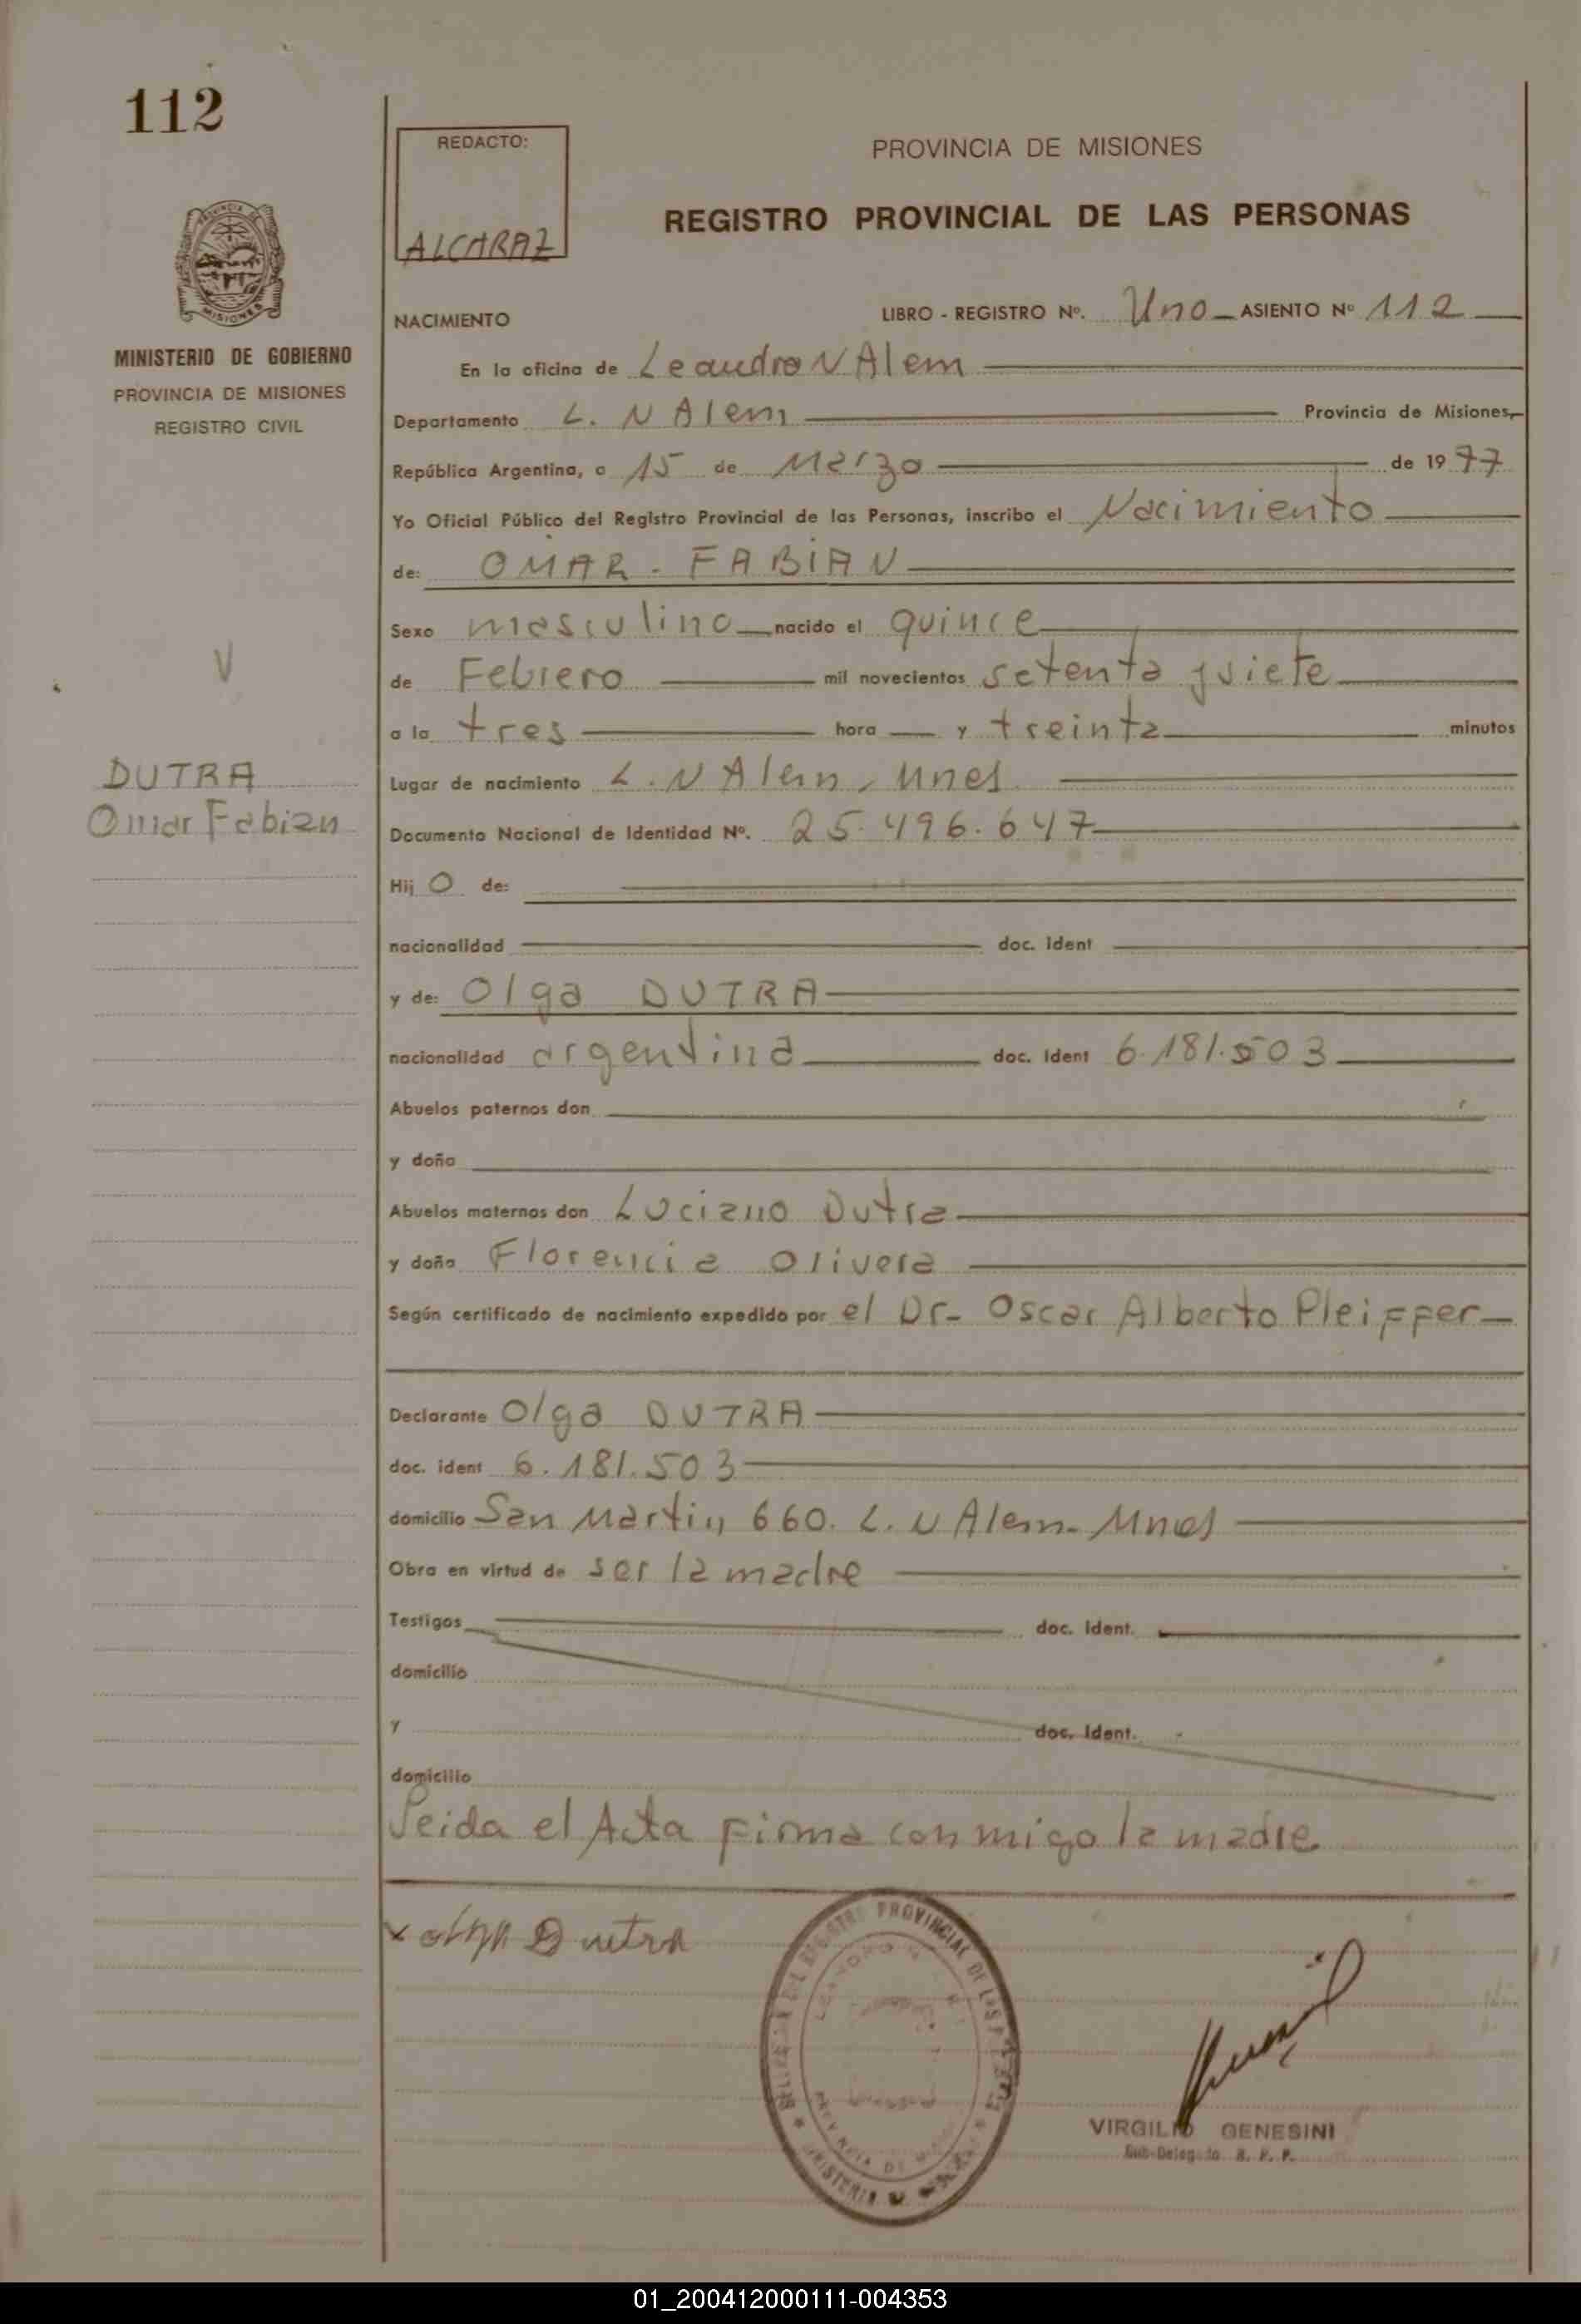 112
REDACTO:
ALCARAZ
PROVINCIA DE MISIONES
REGISTRO PROVINCIAL DE LAS PERSONAS
MISIONES
MINISTERIO DE GOBIERNO
PROVINCIA DE MISIONES
REGISTRO CIVIL
NACIMIENTO LIBRO - REGISTRO Nº. Uno ASIENTO Nº 112
En la oficina de Leandro N Alem
Departamento L. N Alem Provincia de Misiones,
República Argentina, a 15 de Marzo de 1977
Yo Oficial Público del Registro Provincial de las Personas, inscribo el Nacimiento
de: OMAR - FABIAN
Sexo masculino nacido el quince
de Febrero mil novecientos setenta y siete
a la tres hora y treinta minutos
Lugar de nacimiento L. N Alem, Mnes
Documento Nacional de Identidad Nº. 25.496.647
Hij O de:
nacionalidad doc. Ident
y de: Olga DUTRA
nacionalidad argentina doc. Ident 6.181.503
Abuelos paternos don
y doña
Abuelos maternos don Luciano Dutra
y doña Florencia Olivera
Según certificado de nacimiento expedido por el Dr- Oscar Alberto Pleiffer
Declarante Olga DUTRA
doc. ident 6.181.503
domicilio San Martin 660. L. N Alem- Mnes
Obra en virtud de ser la madre
Testigos doc. Ident.
domicilio
y doc. Ident.
domicilio
Leida el Acta Firma conmigo la madre
DUTRA
Omar Fabian
x olga Dutra
PROVINCIAL DE LAS
VIRGILIO GENESINI
Sub-Delegado R. P. P.
01_200412000111-004353